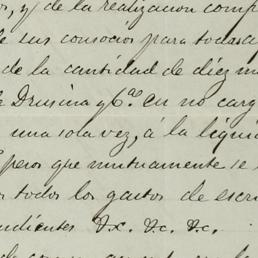 os, y de la realizacion comp
de sus consocios para todas a
de la cantidad de diez m
e Drusina y Cª. en no carg
una sola vez, á la liqui
pesos que mutuamente se
os todos los gastos de escri
ndientes &x. &c. &c.